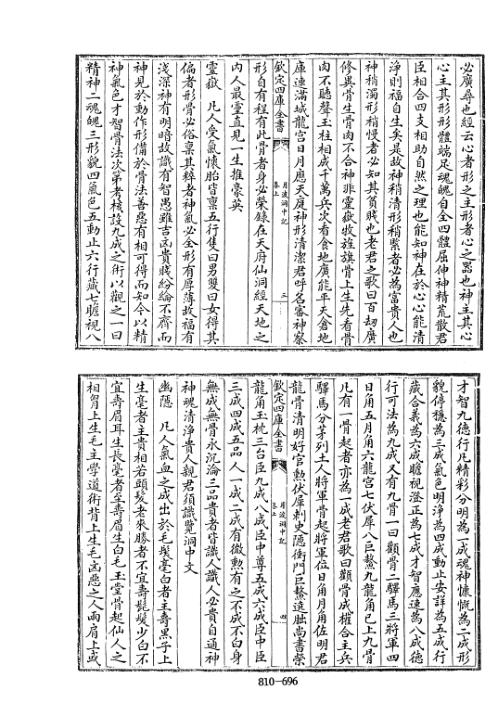 必廣尋也經云心者形之主形者心之噐也神主其心
心主其形形體端足魂魄自全四體屈伸神精荒散君
臣相合四支相助自然之理也能知神在於心心能清
淨則福自生矣是故神稍清形稍緊者必為富貴人也
神稍濁形稍慢者必知其貧賤也老君之歌曰百刼廣
修異骨生骨肉不合神非靈嶽牧旌旗骨上生先看骨
肉不聽聲玉柱相成千萬兵次看食地廣能平天倉地
庫連滿城龍宮日月應天庭神形清潔君呼名審神察
欽定四庫全書
月波洞中記
卷上
三
形自有程有此骨者身必榮錄在天府仙洞經天地之
内人最靈直見一生推豪英
靈嶽 凡人受氣懷胎皆禀五行隻曰男雙曰女得其
偏者形骨必俗稟其粹者神氣必全形有厚薄故福有
淺深神有明暗故識有智愚雖吉凶貴賤紛紛不齊而
神見於動作形備於骨法善惡有相可得而知今以精
神氣色才智骨法次第考校設九成之術以觀之一曰
精神二魂魄三形貌四氣色五動止六行藏七瞻視八
才智九德行凡精彩分明為一成魂神慷慨為二成形
貌停穩為三成氣色明淨為四成動止安詳為五成行
藏合義為六成瞻視澄正為七成才智應速為八成德
行可法為九成又有九骨一曰顴骨二驛馬三將軍四
日角五月角六龍宮七伏犀八巨鰲九龍角已上九骨
凡有一骨起者亦為一成老君歌曰顴骨成權合主兵
驛馬分茅列土人將軍骨起將軍位日角月角佐明君
龍骨清明好官勲伏犀刺史隠衙門巨鰲遶腦尚書榮
欽定四庫全書
月波洞中記
卷上
四
龍角玉枕三台臣九成八成臣中尊五成六成臣中臣
三成四成五品人一成二成有微勲有之不成不白身
無成無骨永沉淪三品貴者皆識人識人必貴自通神
神魂清淨貴人親君須識覽洞中文
幽隠 凡人氣血之成出於毛髪毫白者主壽黒子上
生毫者主貴相若頭髪老來勝者不宜壽髭髮少白不
宜壽眉耳生長毫者至壽眉生白毛玉堂骨起仙人之
相胷上生毛主學道術背上生毛凶惡之人兩肩上或
810-696